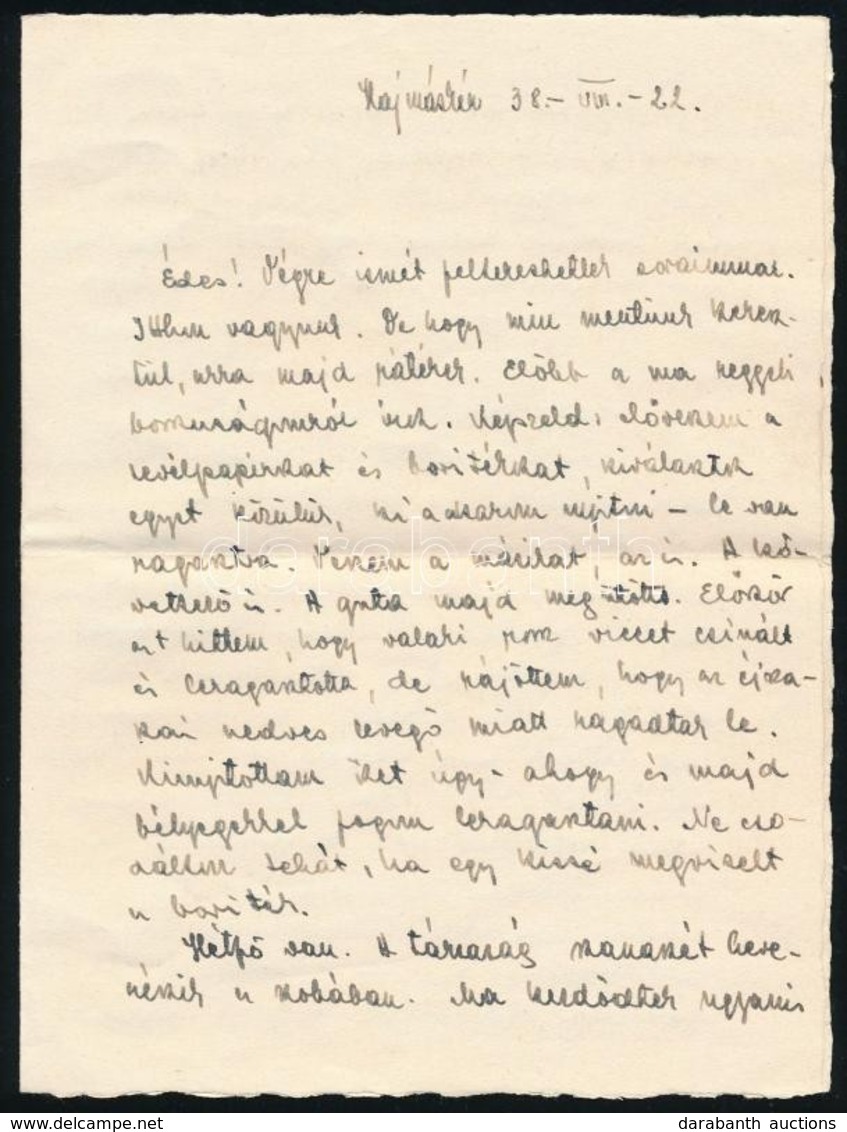 Hajmáskér 38.- VIII.-22.
Édes! Végre ismét felkereshetlek soraimmal.
Itthon vagyunk. De hogy min mentünk keresz-
tül, arra majd rátérek. Előbb a ma reggeli
bosszúságomról írok. Képzeld: előveszem a
levélpapírokat és borítékokat, kiválasztok
egyet közülük, ki akarom nyitni – le van
ragasztva. Veszem a másikat, az is. A kö-
vetkező is. A guta majd megütött. Először
azt hittem, hogy valaki rossz viccet csinált
és leragasztotta, de rájöttem, hogy az éjsza-
kai nedves levegő miatt ragadtak le.
Kinyitottam őket úgy-ahogy és majd
bélyegekkel fogom leragasztani. Ne cso-
dálkozz tehát, ha egy kissé megviselt
a boríték.
Hétfő van. A társaság kanasztét heve-
részik a szobában. Ma kezdődtek ugyanis
darabanth
darabanth auctions